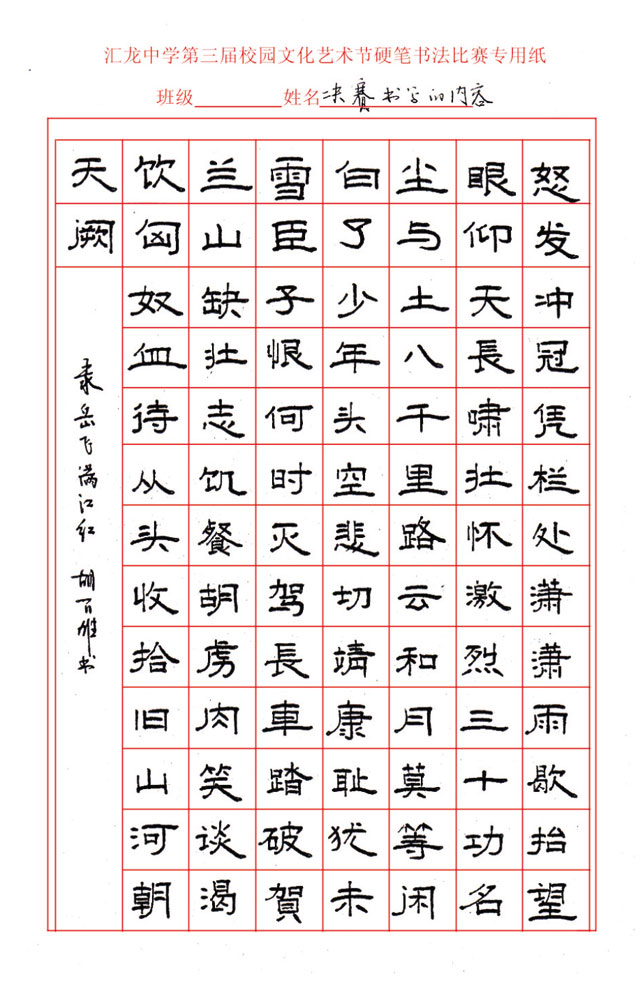 汇龙中学第三届校园文化艺术节硬笔书法比赛专用纸
班级 姓名决赛书写的内容
怒发冲冠凭栏处潇潇雨歇抬望
眼仰天長啸壮怀激烈三十功名
尘与土八千里路云和月莫等闲
白了少年头空悲切靖康耻犹未
雪臣子恨何时灭驾長車踏破賀
兰山缺壮志饥餐胡虏肉笑谈渴
饮匈奴血待从头收拾旧山河朝
天阙
录岳飞满江红 胡百雄书